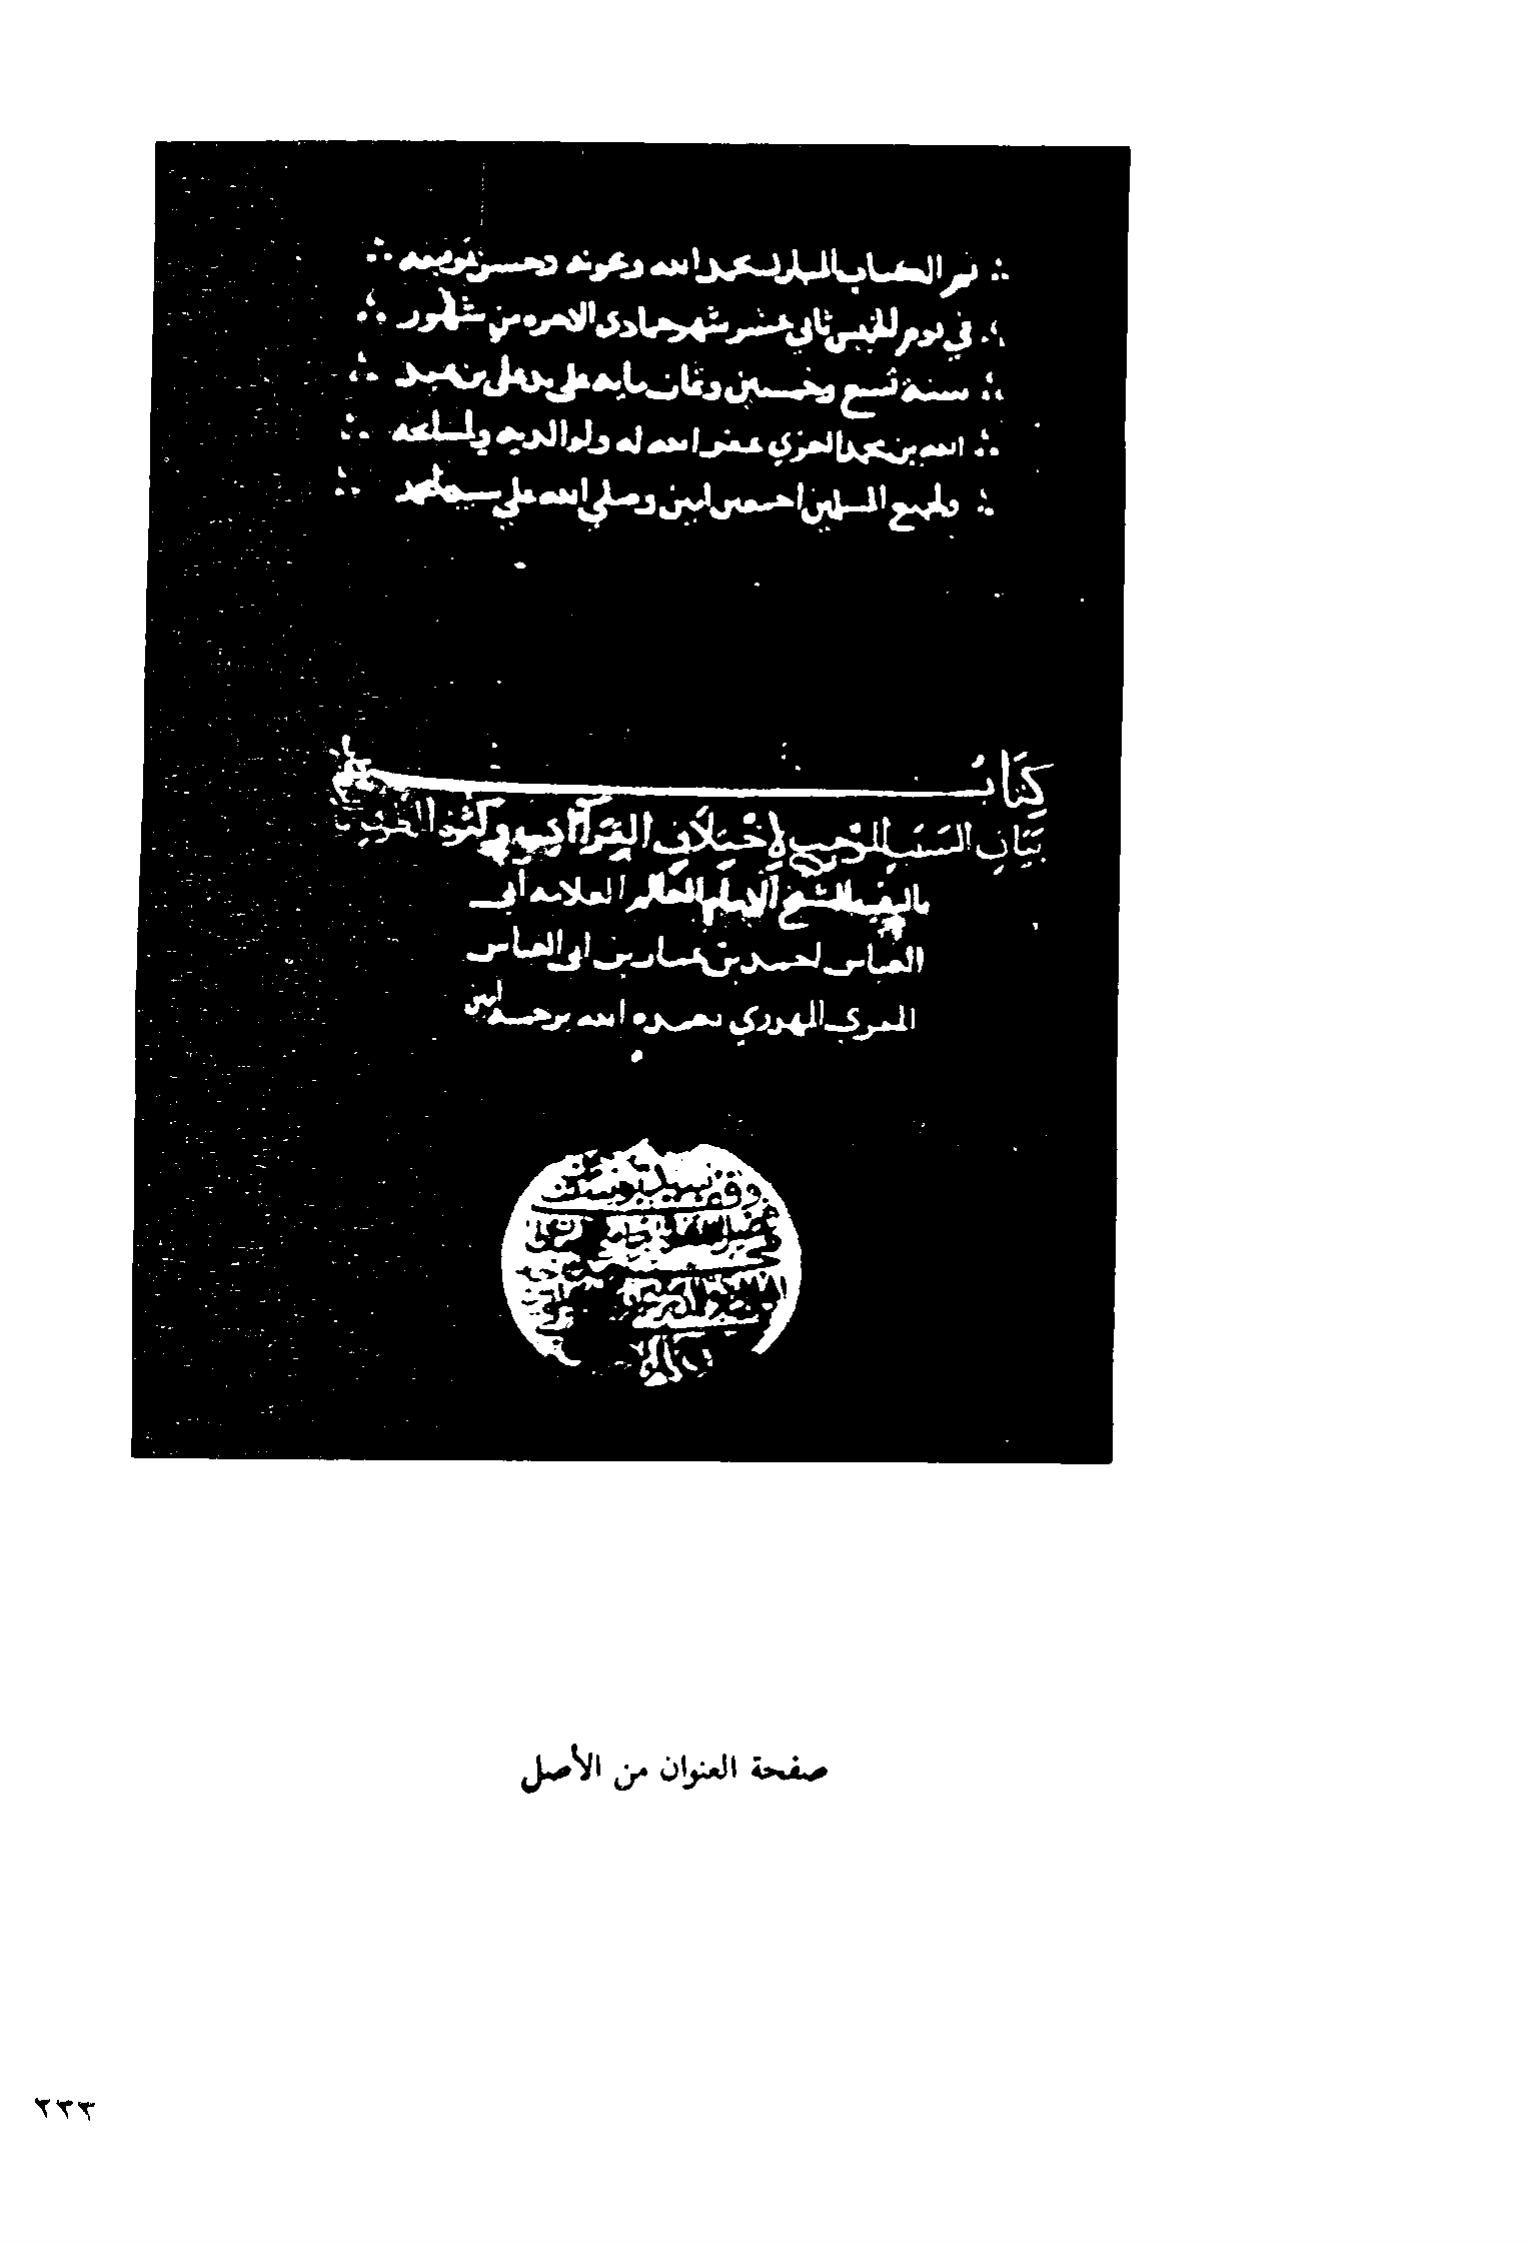 تم الكتاب المبارك بحمد الله وعونه وحسن توفيقه
في يوم الخميس ثاني عشر شهر جمادى الاخره من شهور
سنة تسع وخمسين وثمان مايه على يد علي بن عبد
الله بن محمد الغزي غفر الله له ولوالديه ولمشايخه
ولجميع المسلمين اجمعين امين وصلى الله علي سيدنا محمد
كِتَاب
بَيَان السَبَب المُوجِب لاِخْتِلَافِ القِرَآات وكَثْرَة الطُرُق
تاليف الشيخ الامام العالم العلامه ابي
العباس احمد بن عمار بن ابي العباس
المقري المهدوي تغمده الله برحمته امين
صفحة العنوان من الأصل
٢٣٣